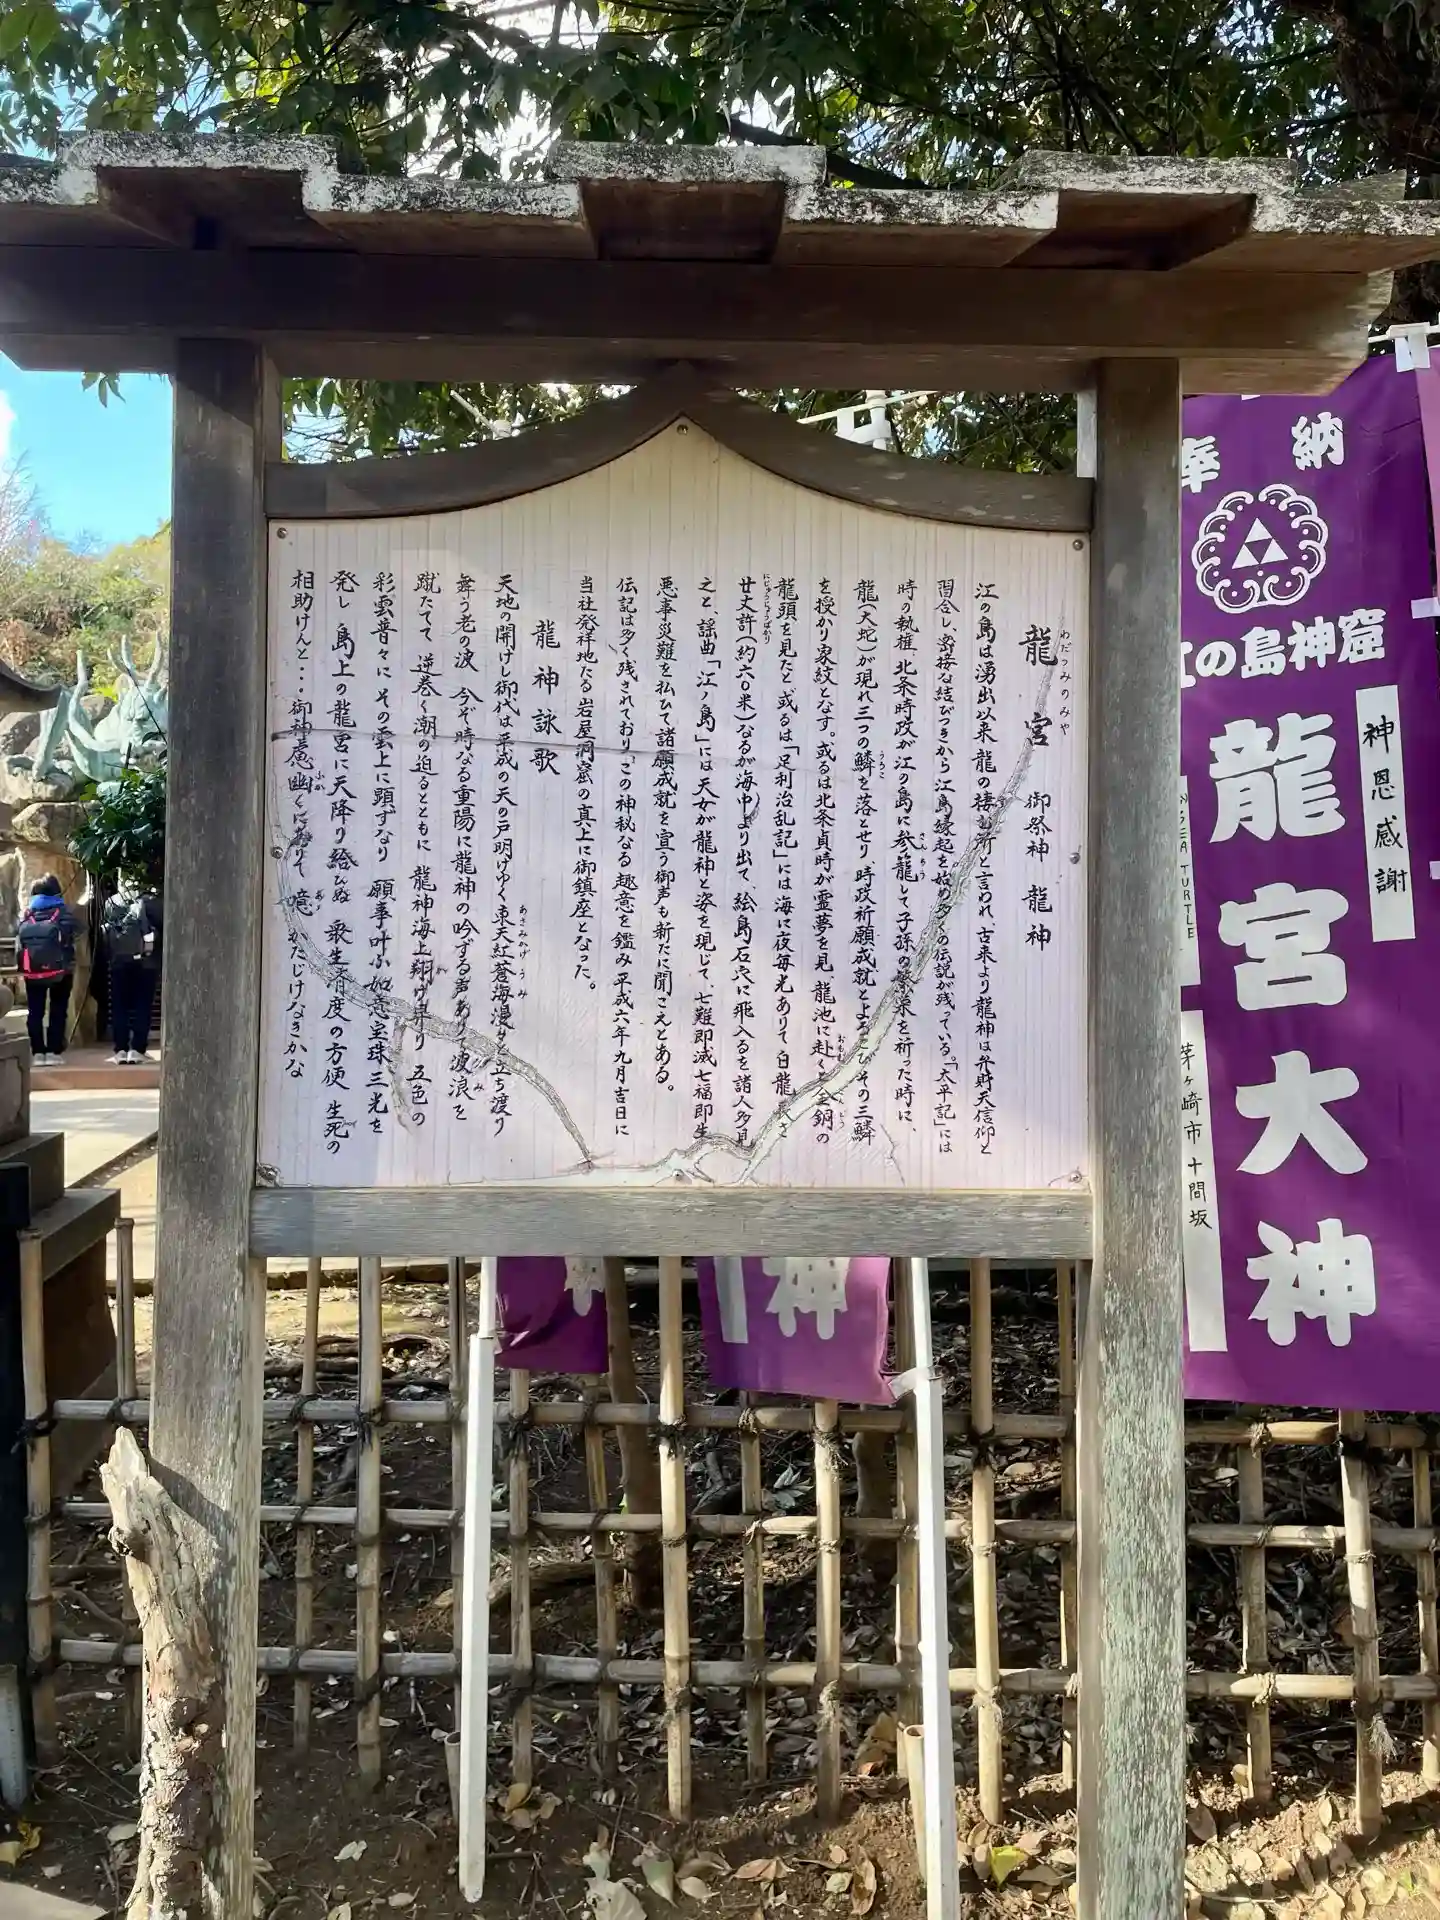 龍宮 御祭神 龍神
わだつみのみや
江の島は湧出以来 龍の棲む所と言われ、古来より龍神は弁財天信仰と
習合し、密接な結びつきから江島縁起を始め多くの伝説が残っている。「太平記」には
時の執権、北条時政が江の島に参籠して子孫の繁栄を祈った時に、
さんろう
龍(大蛇)が現れ三つの鱗を落とせり、時政祈願成就とよろこびその三鱗
うろこ
を授かり家紋となす。或るは北条貞時が霊夢を見、龍池に赴くと金銅の
おもむ
龍頭を見たと或るは「足利治乱記」には海に夜毎光ありて白龍長さ
廿丈許(約六〇米)なるが海中より出て、絵島石穴に飛入るを諸人多見
にじゅうじょうばかり
之と、謡曲「江ノ島」には天女が龍神と姿を現じて、七難即滅七福即生
悪事災難を払ひて諸願成就を宣う御声も新たに聞こえとある。
伝記は多く残されており「この神秘なる趣意を鑑み平成六年九月吉日に
当社発祥地たる岩屋洞窟の真上に御鎮座となった。
龍神詠歌
天地の開けし御代は平成の天の戸明けゆく東天紅蒼海漫々と立ち渡り
あさみかげ うみ
舞う老の波 今ぞ時なる重陽に龍神の吟ずる声ありて波浪を
蹴たてて 逆巻く潮の迫るとともに 龍神海上翔け昇り 五色の
彩雲普々に その雲上に顕ずなり 願事叶ふ如意宝珠三光を
発し 島上の龍宮に天降り給ひぬ 衆生済度の方便 生死の
相助けんと・・・御神慮幽くにありて 噫 かたじけなきかな
ふか
あゝ
奉納
江の島神窟
龍宮大神
神恩感謝
SEA TURTLE
茅ヶ崎市 十間坂
神
神